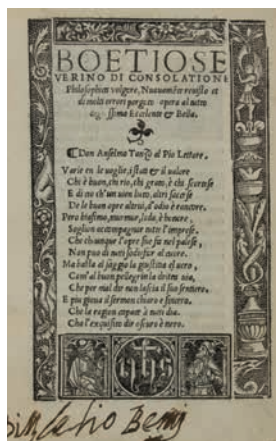 BOETIO SE
VERINO DI CONSOLATIONE
Philosophica volgare, Nuouamēte reuisto et
di molti errori purgato opera al tutto
ssima Excelente & Bella.
Don Anselmo Tanzo al Pio Lettore.
Varie en le voglie, i stati & il valore
Chi è buon, chi rio, chi grato, è chi
E di no ch'un vien lieto, altri
De le buon opre altrui, l'odio è rancore.
Pero biasimo, murmur, lode, è honore,
Soglion accompagnar tutte l'imprese,
Che chiunque l'opre sue fa nel palese,
Non puo di tutti sodisfar al cuore.
Ma basta al saggio la giustitia el vero,
Com'al buon pellegrin la dritta via,
Che per mal dir non lascia il suo sentiero.
E piu gioua il sermon chiaro e sincero.
Che la ragion expone à tutti dia.
Che l'exquisito dir oscuro è nero.
yhs